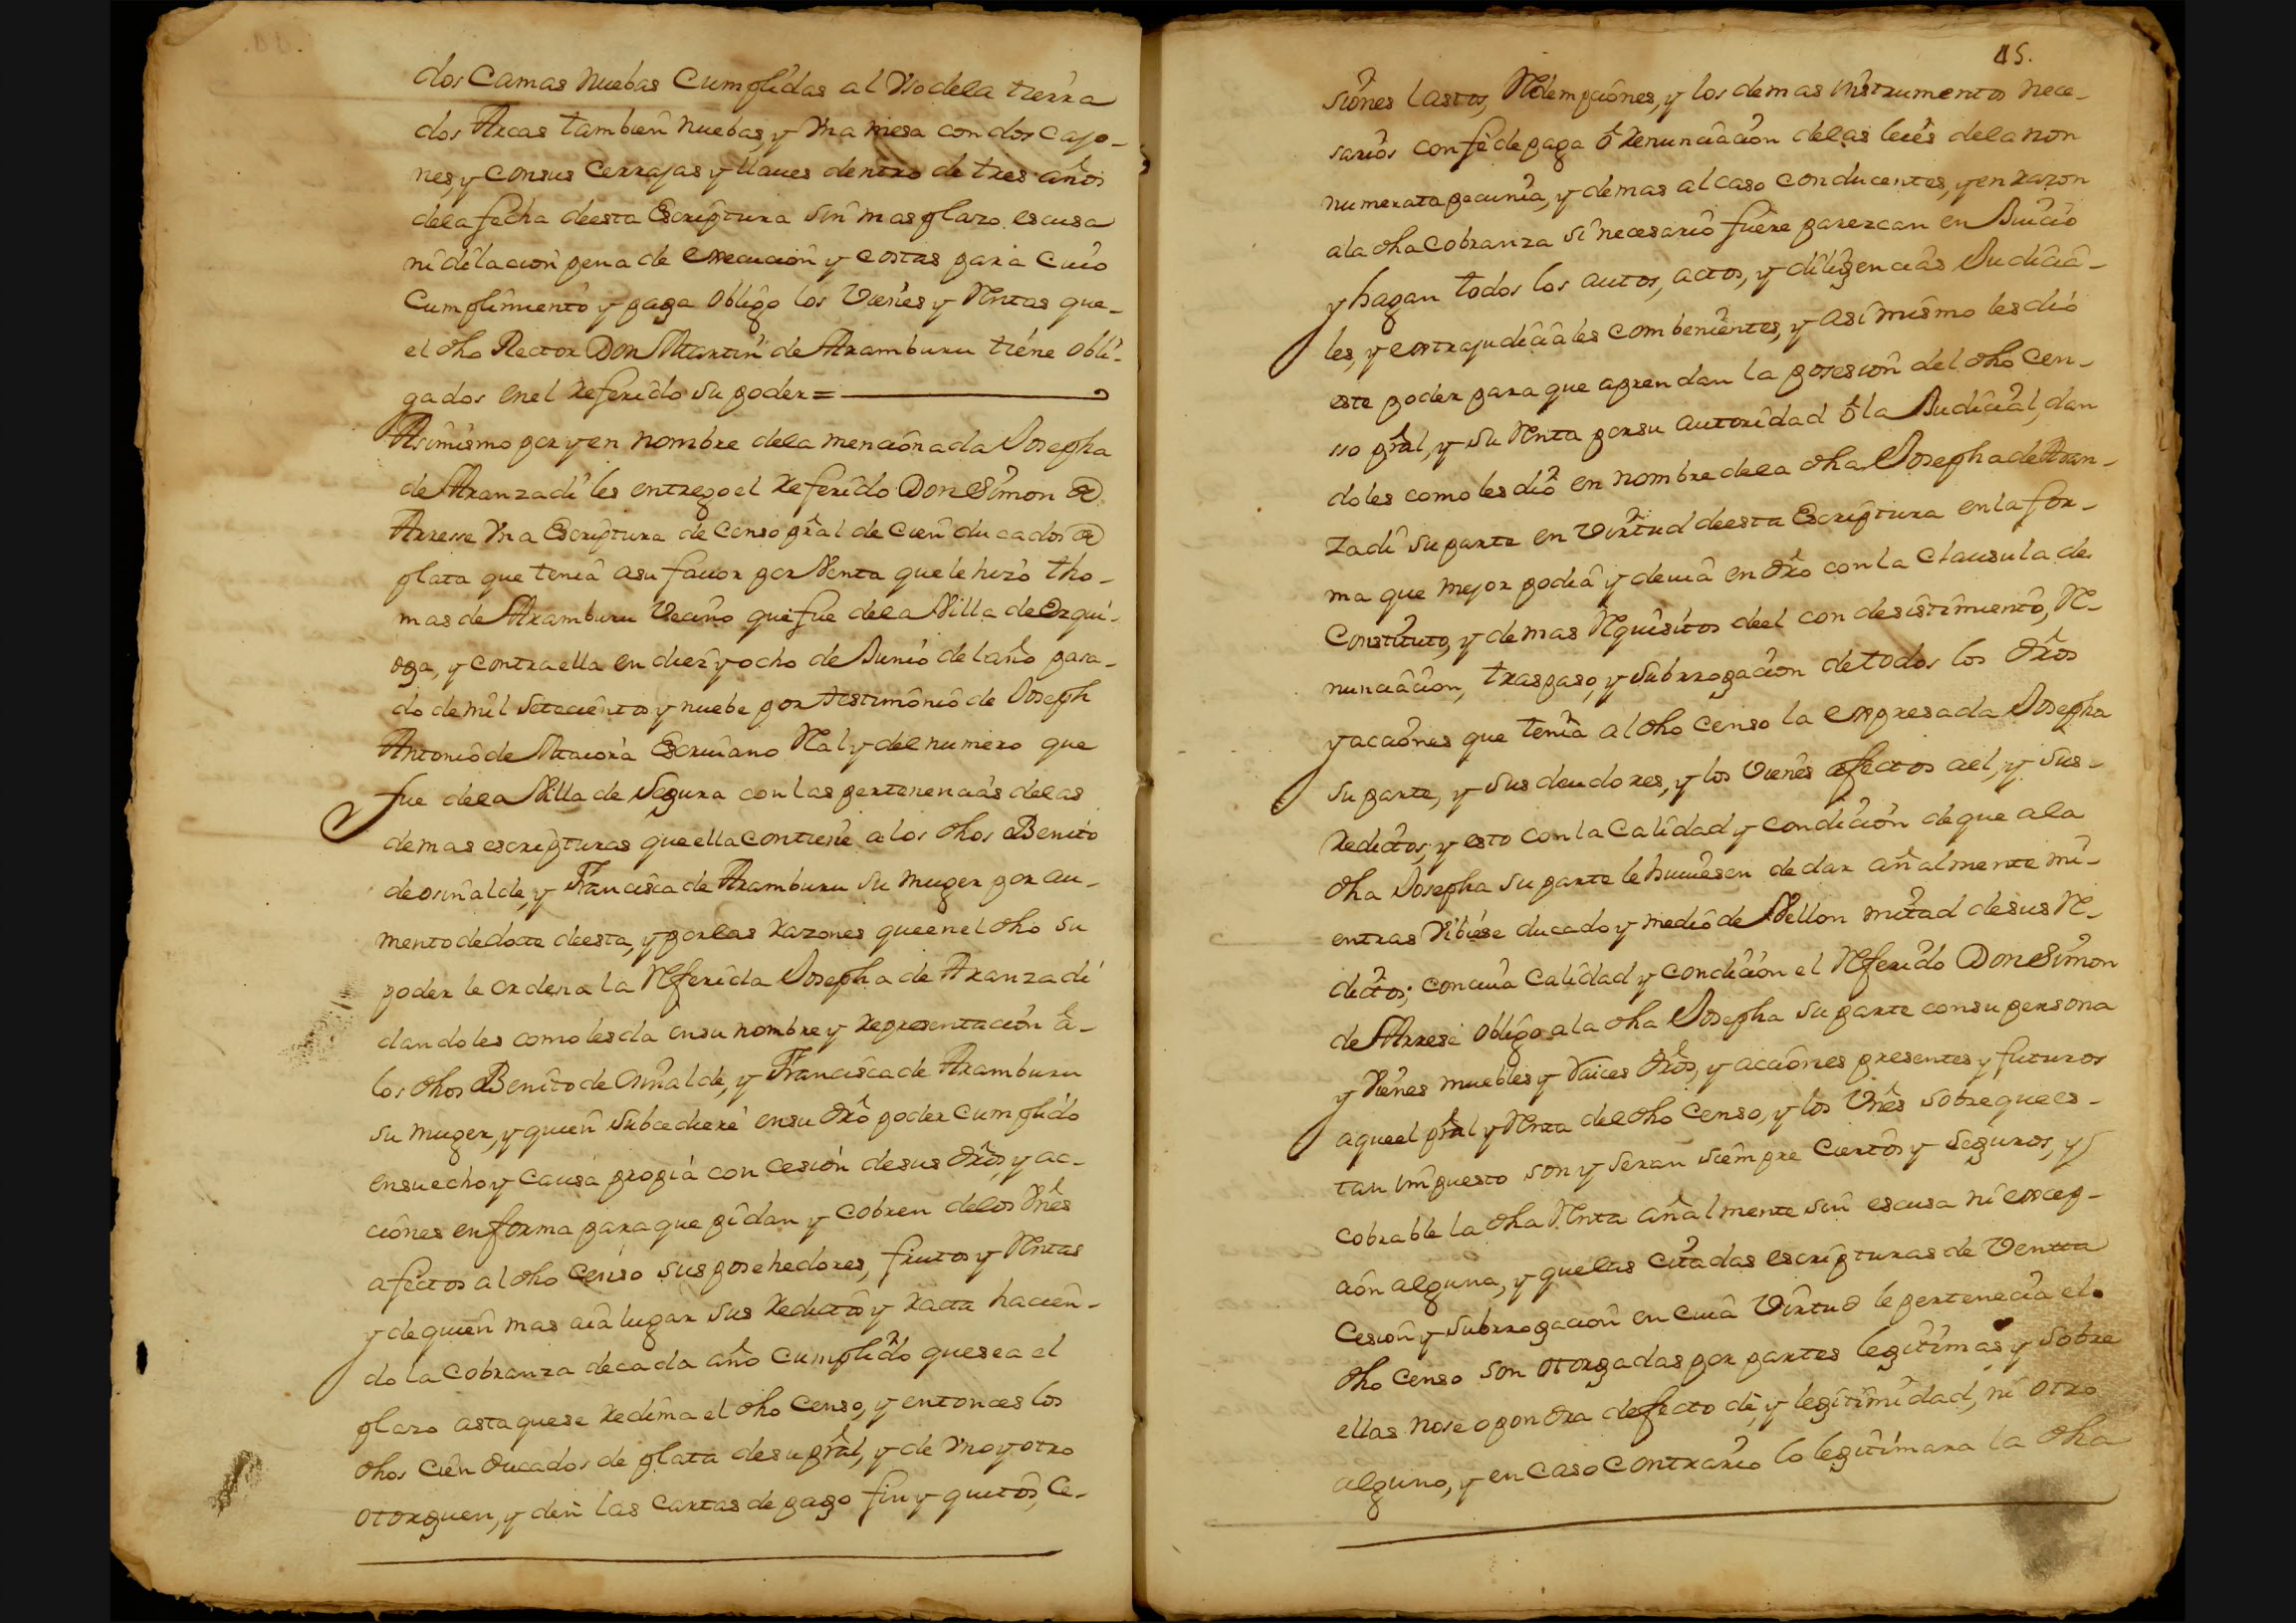 dos Camas nuebas Cumplidas al Vso dela tierra
dos Arcas tambien nuebas, y Vna mesa con dos cajo-
nes, y con sus Cerrajas y llaues dentro de tres años
dela fecha deesta Escriptura sin mas plazo escusa
ni dilacion pena de execucion y costas para cuio
Cumplimiento y paga obligo los Vienes y Rentas que-
el dho Rector Don Martin de Aramburu tiene obli-
gados en el referido su poder =
Asimismo por y en nombre dela mencionada Josepha
de Aranzadi les entrego el referido Don Simon de
Arrese Vna Escriptura de Censo pral de cien ducados de
plata que tenia a su fauor por Venta que le hizo Tho-
mas de Aramburu Vecino que fue dela Villa de Ezqui-
oga, y contra ella en diez y ocho de Junio del año pasa-
do de mil Setecientos y nuebe por testimonio de Joseph
Antonio de Maiora Escriuano Real y del numero que
fue dela Villa de Segura con las pertenencias delas
demas escripturas que ella contiene a los dhos Benito
de osinalde, y Francisca de Aramburu su muger por au-
mento de dote deesta, y por las razones que en el dho su
poder le ordena la Referida Josepha de Aranzadi
dandoles como les da en su nombre y representacion à-
los dhos Benito de Osinalde, y Francisca de Aramburu
su muger, y quien Subcediere en su dro poder cumplido
en su echo y causa propia con cesion de sus dros, y ac-
ciones en forma para que pidan y cobren delos Vnes
afectos al dho Censo sus posehedores, frutos y Rentas
y de quien mas aia lugar sus redictos y rata hacien-
do la cobranza de cada año cumplido que sea el
plazo asta que se redima el dho Censo, y entonces los
dhos cien ducados de plata de su pral, y de Vno y otro
otorguen, y den las cartas de pago fin y quitos, Ce-
15.
siones lastos, Redempciones, y los demas instrumentos nece-
sarios con fe de paga ò renunciacion delas leies dela non
numerata pecunia, y demas al caso conducentes, y en razon
a la dha cobranza si necesario fuere parezcan en Juicio
y hagan todos los autos, actos, y diligencias Judicia-
les, y extrajudiciales combenientes, y asi mismo les dió
este poder para que aprendan la posesion del dho cen-
sso pral, y su Renta por su autoridad ò la Judicial, dan
doles como les dió en nombre dela dha Josepha de Aran-
zadi su parte en Virtud deesta Escriptura en la for-
ma que mejor podia y deuia en dro con la clausula de
Constituto, y demas Requisitos deel con desistimiento, Re-
nunciacion, traspaso, y subrrogacion de todos los dros
y acciones que tenia al dho censo la expresada Josepha
su parte, y sus deudores, y los Vienes afectos ael, y sus-
redictos; y esto con la calidad y condicion de que a la
dha Josepha su parte le huuiesen de dar añalmente mi-
entras Vibiese ducado y medio de Vellon mitad de sus Re-
dictos; con cuia calidad y condicion el Referido Don Simon
de Arrese obligo a la dha Josepha su parte con su persona
y Vienes muebles y raices dros, y acciones presentes y futuros
a que el pral y Renta del dho Censo, y los Vnes sobre que es-
tan impuesto son y seran siempre ciertos y seguros, y
cobrable la dha Renta añalmente sin escusa ni excep-
cion alguna, y que las citadas escripturas de Ventta
Cesion y subrrogacion en cuia Virtud le pertenecia el
dho Censo son otorgadas por partes legitimas y sobre
ellas no se opondra defecto de, y legitimidad, ni otro
alguno, y en caso contrario lo legitimara la dha